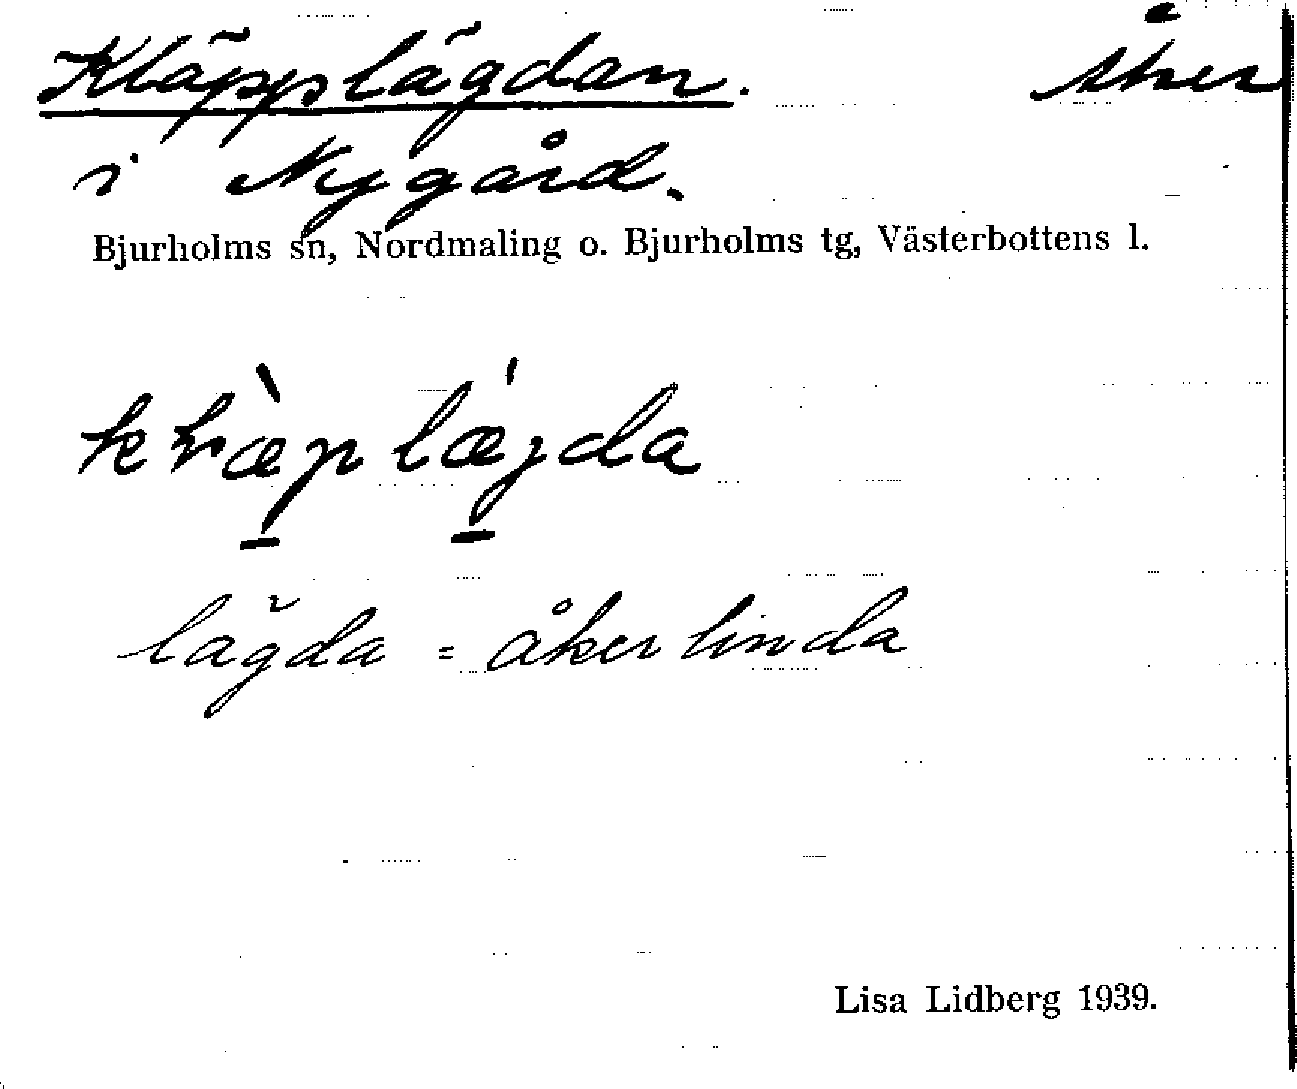 Kläpplägdan. åker
i Nygård.
Bjurholms sn, Nordmaling o. Bjurholms tg, Västerbottens l.
lägda = åkerlinda
Lisa Lidberg 1939.